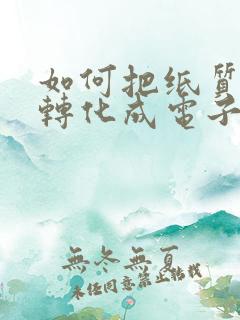 如何把纸質
轉化成電子
無冬無夏
未经同意禁止转载